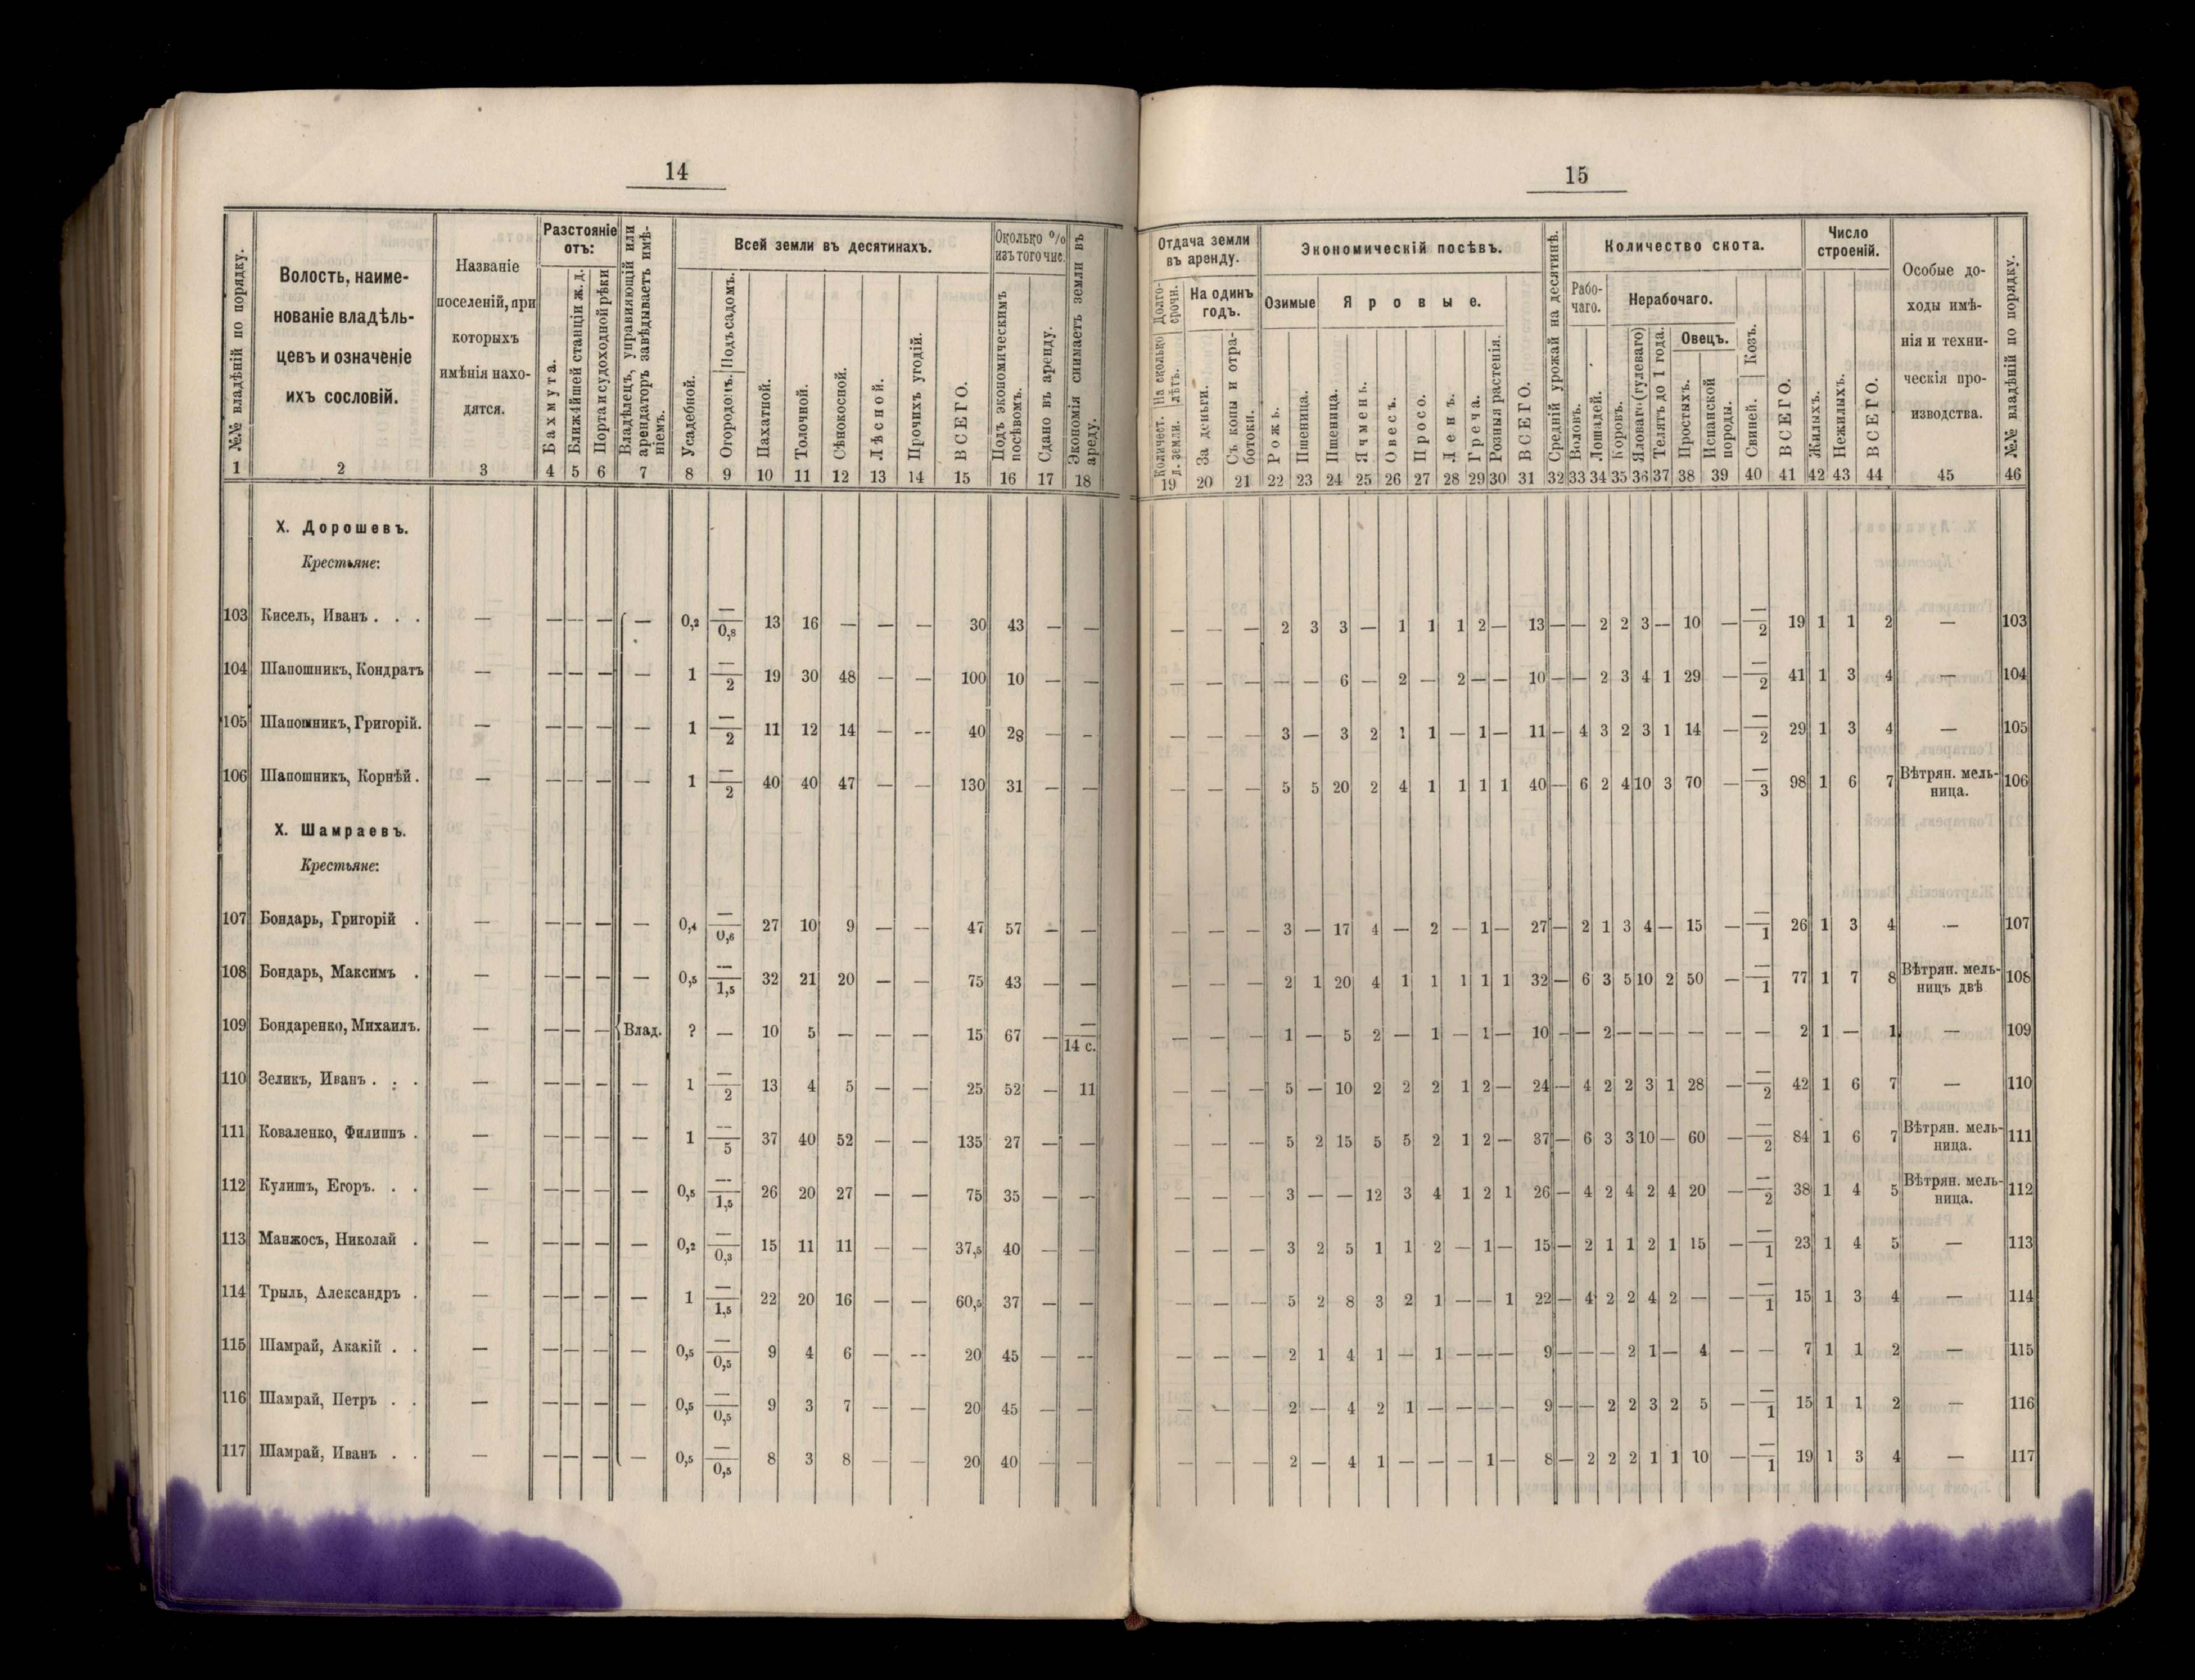 14
№№ владѣній по порядку.
Волость, наиме-
нованіе владѣль-
цевъ и означеніе
ихъ сословій.
Названіе
поселеній, при
которыхъ
имѣнія нахо-
дятся.
Разстояніе
отъ:
Бахмута.
Ближайшей станціи ж. д.
Порта и судоходной рѣки
Владѣлецъ, управляющій или
арендаторъ завѣдываетъ имѣ-
ніемъ.
Всей земли въ десятинахъ.
Усадебной.
Огородомъ. Подъ садомъ.
Пахатной.
Толочной.
Сѣнокосной.
Лѣсной.
Прочихъ угодій.
ВСЕГО.
Около %
изъ того чис.
Подъ экономическимъ
посѣвомъ.
Сдано въ аренду.
Экономія снимаетъ земли въ
аренду.
1 2 3 4 5 6 7 8 9 10 11 12 13 14 15 16 17 18
Х. Дорошевъ.
Крестьяне:
103 Кисель, Иванъ . . . — — — — — 0,2 —/0,8 13 16 — — — 30 43 — —
104 Шапошникъ, Кондратъ — — — — — 1 —/2 19 30 48 — — 100 10 — —
105 Шапошникъ, Григорій. — — — — — 1 —/2 11 12 14 — — 40 28 — —
106 Шапошникъ, Корнѣй . — — — — — 1 —/2 40 40 47 — — 130 31 — —
Х. Шамраевъ.
Крестьяне:
107 Бондарь, Григорій . — — — — — 0,4 —/0,6 27 10 9 — — 47 57 — —
108 Бондарь, Максимъ . — — — — — 0,5 —/1,5 32 21 20 — — 75 43 — —
109 Бондаренко, Михаилъ. — — — — Влад. ? — 10 5 — — — 15 67 — —/14 с.
110 Зеликъ, Иванъ . . . — — — — — 1 —/2 13 4 5 — — 25 52 — 11
111 Коваленко, Филиппъ . — — — — — 1 —/5 37 40 52 — — 135 27 — —
112 Кулишъ, Егоръ. . . — — — — — 0,5 —/1,5 26 20 27 — — 75 35 — —
113 Манжосъ, Николай . — — — — — 0,2 —/0,3 15 11 11 — — 37,5 40 — —
114 Трыль, Александръ . — — — — — 1 —/1,5 22 20 16 — — 60,5 37 — —
115 Шамрай, Акакій . . — — — — — 0,5 —/0,5 9 4 6 — — 20 45 — —
116 Шамрай, Петръ . . — — — — — 0,5 —/0,5 9 3 7 — — 20 45 — —
117 Шамрай, Иванъ . . — — — — — 0,5 —/0,5 8 3 8 — — 20 40 — —
15
Отдача земли
въ аренду.
Количест. На сколько Долго-
д. земли. лѣтъ. срочн.
На одинъ
годъ.
За деньги.
Съ копы и отра-
ботки.
Экономическій посѣвъ.
Озимые
Яровые.
Рожь.
Пшеница.
Пшеница.
Ячмень.
Овесъ.
Просо.
Ленъ.
Греча.
Розныя растенія.
ВСЕГО.
Средній урожай на десятинѣ.
Количество скота.
Рабо-
чаго.
Нерабочаго.
Воловъ.
Лошадей.
Коровъ.
Яловаго (гулеваго)
Телятъ до 1 года.
Овецъ.
Простыхъ.
Испанской
породы.
Свиней. Козъ.
ВСЕГО.
Число
строеній.
Жилыхъ.
Нежилыхъ.
ВСЕГО.
Особые до-
ходы имѣ-
нія и техни-
ческія про-
изводства.
№№ владѣній по порядку.
19 20 21 22 23 24 25 26 27 28 29 30 31 32 33 34 35 36 37 38 39 40 41 42 43 44 45 46
— — — 2 3 3 — 1 1 1 2 — 13 — — 2 2 3 — 10 — —/2 19 1 1 2 — 103
— — — — — 6 — 2 — 2 — — 10 — — 2 3 4 1 29 — —/2 41 1 3 4 — 104
— — — 3 — 3 2 1 1 — 1 — 11 — 4 3 2 3 1 14 — —/2 29 1 3 4 — 105
— — — 5 5 20 2 4 1 1 1 1 40 — 6 2 4 10 3 70 — —/3 98 1 6 7 Вѣтрян. мель-
ница. 106
— — — 3 — 17 4 — 2 — 1 — 27 — 2 1 3 4 — 15 — —/1 26 1 3 4 — 107
— — — 2 1 20 4 1 1 1 1 1 32 — 6 3 5 10 2 50 — —/1 77 1 7 8 Вѣтрян. мель-
ницъ двѣ 108
— — — 1 — 5 2 — 1 — 1 — 10 — — 2 — — — — — — 2 1 — 1 — 109
— — — 5 — 10 2 2 2 1 2 — 24 — 4 2 2 3 1 28 — —/2 42 1 6 7 — 110
— — — 5 2 15 5 5 2 1 2 — 37 — 6 3 3 10 — 60 — —/2 84 1 6 7 Вѣтрян. мель-
ница. 111
— — — 3 — — 12 3 4 1 2 1 26 — 4 2 4 2 4 20 — —/2 38 1 4 5 Вѣтрян. мель-
ница. 112
— — — 3 2 5 1 1 2 — 1 — 15 — 2 1 1 2 1 15 — —/1 23 1 4 5 — 113
— — — 5 2 8 3 2 1 — — 1 22 — 4 2 2 4 2 — — —/1 15 1 3 4 — 114
— — — 2 1 4 1 — 1 — — — 9 — — — 2 1 — 4 — — 7 1 1 2 — 115
— — — 2 — 4 2 1 — — — — 9 — — 2 2 3 2 5 — —/1 15 1 1 2 — 116
— — — 2 — 4 1 — — — 1 — 8 — 2 2 2 1 1 10 — —/1 19 1 3 4 — 117